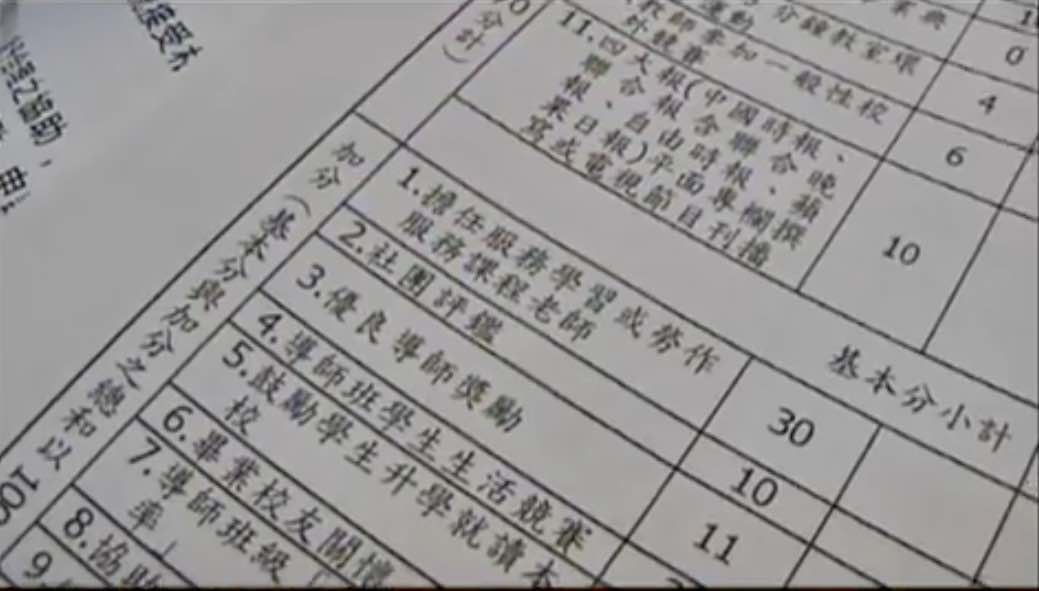 分鐘教室環
4
教師參加一般性校
外競賽
6
11.四大報(中國時報、
聯合報含聯合晚
報、自由時報、蘋
果日報)平面專欄撰
寫或電視節目刊播
10
基本分小計
加分(基本分與加分之總和以100
1.擔任服務學習或勞作
服務課程老師
30
2.社團評鑑
10
3.優良導師獎勵
11
4.導師班學生生活競賽
5.鼓勵學生升學就讀本
校
6.畢業校友關懷
7.導師班級
率
8.協助
9.
分計)
0
接受本
之協助,